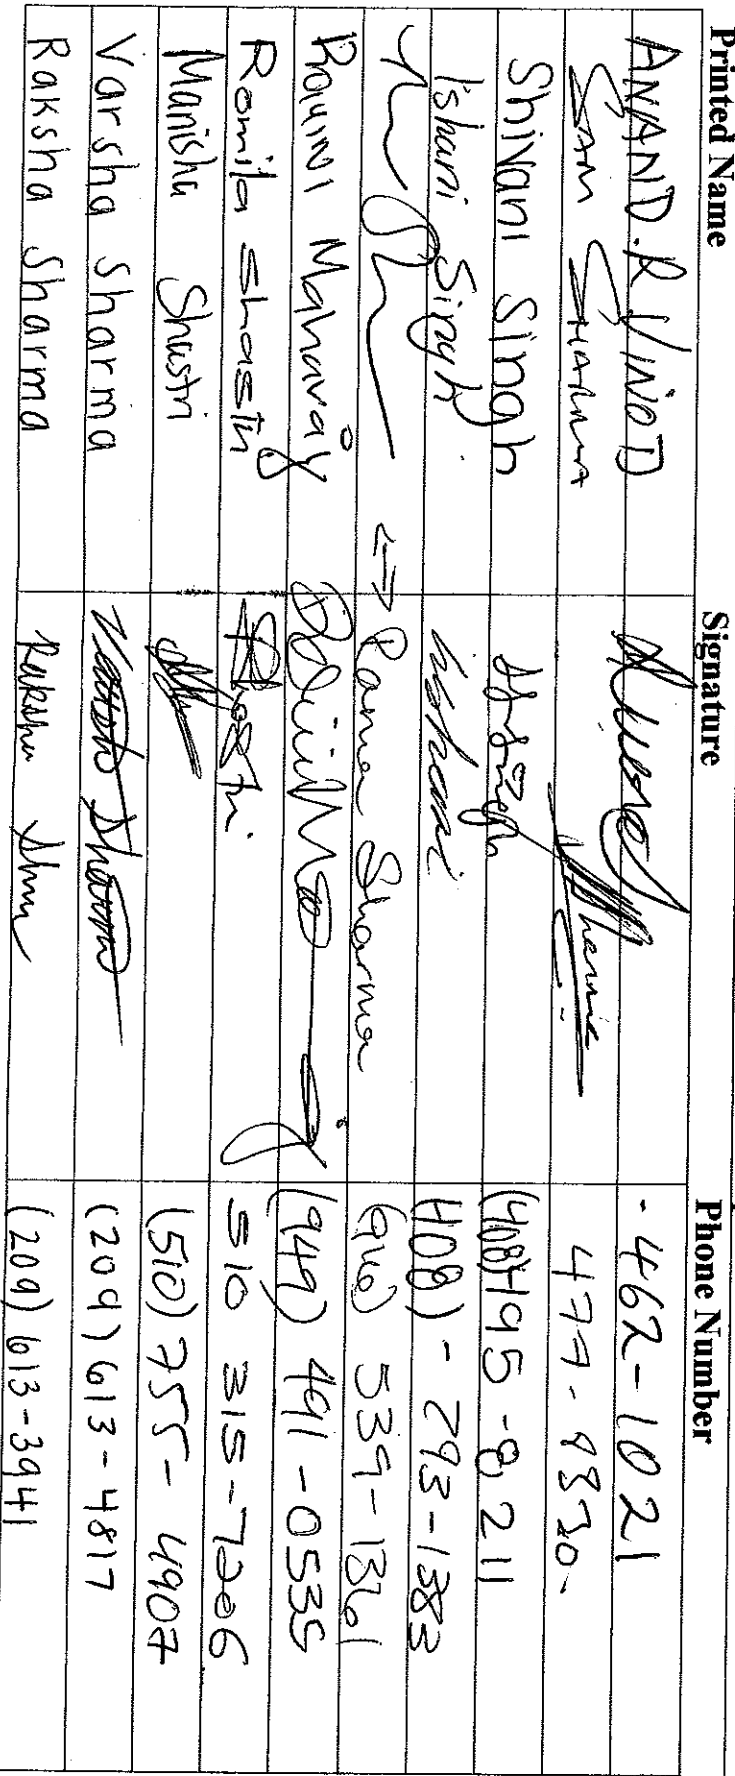 Printed Name Signature Phone Number
ANAND.R.VINOD -462-1021
SAM SHARMA 477-8330-
Shivani Singh (408)495-8211
Ishani Singh. Ishani 408)-293-1383
↔ Rama Sharma (916) 539-1361
Maharaj (949) 491-0535
Romila Shastri 510 315-7206
Manisha Shastri (510)755-4907
Varsha Sharma Varsha Sharma (209)613-4817
Raksha Sharma Raksha (209)613-3941